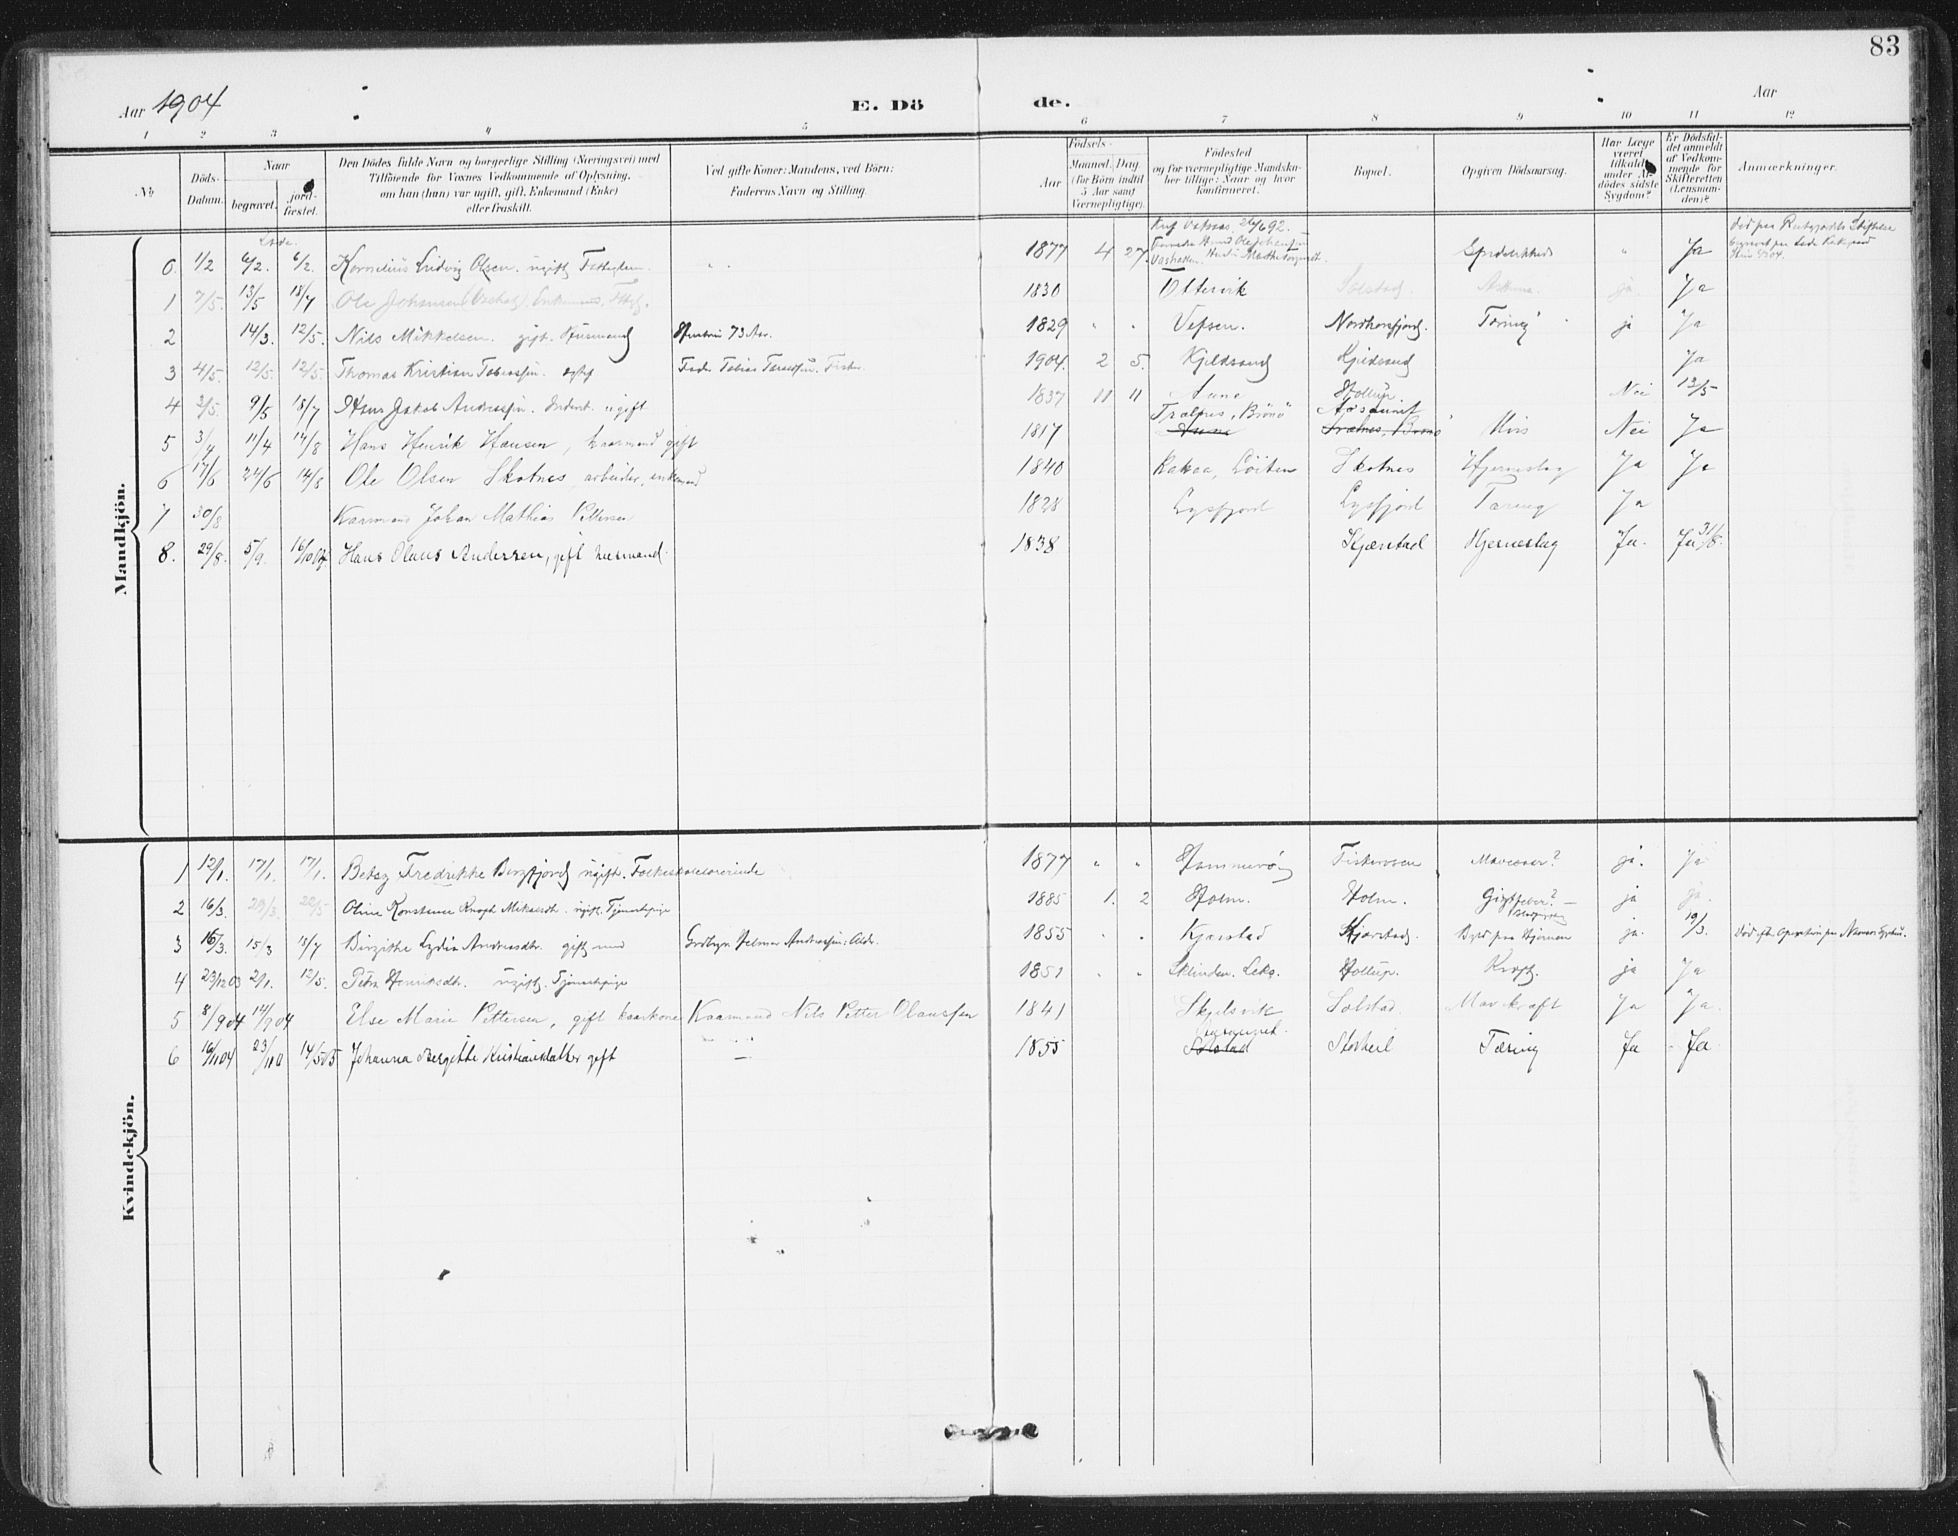 83
Aar 1904
E. Dö
de.
Aar
1 2 3 4 5 6 7 8 9 10 11 12
No
Döds-
Datum.
Naar
begravet.
jord-
fæstet.
Den Dödes fulde Navn og borgerlige Stilling (Næringsvei) med
Tilföiende for Voxnes Vedkommende af Oplysning,
om han (hun) var ugift, gift, Enkemand (Enke)
eller fraskilt.
Ved gifte Koner: Mandens, ved Börn:
Faderens Navn og Stilling.
Födsels-
Aar
Maaned. Dag
(for Börn indtil
5 Aar samt
Værnepligtige).
Födested
og for værnepligtige Mandska-
ber tillige: Naar og hvor
konfirmeret.
Bopæl.
Opgiven Dödsaarsag.
Har Læge
været
tilkaldt
under Af-
dödes sidste
Sygdom?
Er Dödsfal-
det anmeldt
af Vedkom-
mende for
Skifteretten
(Lensman-
den)?
Anmærkninger.
Mandkjön.
0. 1/2 6/2. 6/2. Kornelius Ludvig Olsen. ugift 1877 4 27 Spedalskhed " Ja
1 7/5. 13/5 18/7 Ole Johansen Enkemand, 1830 Ottervik Solstad. Astma. ja Ja
2 14/3. 12/5. Nils Mikkelsen. gift. Husmand Hustru 73 Aar. 1829 " " Vefsen. Nordhorsfjord. Tæring ja Ja
3 4/5. 12/5. 12/5. Thomas Kristian Tobiassen. ægte Fader Tobias 1904. 2 5. Kjeldsand Kjeldsand Ja
4 3/5. 9/5 18/7 Hans Jakob Andreassen. Indent. ugift 1837 11 11 Aune Hollup. Nei 13/5
5 3/4 11/4 14/8 Hans Henrik Hansen, kaarmand gift 1817 Trælnes, Brönö Aasaunet Nei Ja
6 17/6 24/6 14/8 Ole Olsen Skotnes, arbeider, enkemand 1840 Löiten Skotnes Hjerneslag Ja Ja
7 30/8 Kaarmand Johan Mathias Pettersen 1828 Lysfjord Lysfjord Tæring Ja
8. 29/8. 5/9. Hans Olaus Andersen, gift husmand. 1838 Kjærstad Hjerneslag Ja. Ja 31/8.
Kvindekjön.
1 12/1. 17/1. 17/1. Betzy Fredrikke Bergfjord ugift. Folkeskolelærerinde 1877 " " Hammerö Fiskerosen Mavesaar? ja. Ja
2 16/3. 29/3. 22/5 Oline Konstanse Mikalsdtr. ugift. Tjenestepige 1885 1. 2 Holm. Holm. Gigtfeber? ja ja.
3 16/3. 15/3 18/7 Birgithe Lydia Andreasdtr. gift med Grdbgr. Helmer Andreassen: 1855 " " Kjærstad Kjærstad. Byld paa Hjernen ja. 19/3.
4 23/12 03 2/1. 12/5. Petra Henriksdtr. ugift. Tjenestepige 1851 " " Sklinden. Leka. Hollup. Kræft. ja Ja
5 8/9 04 14/9 04 Else Marie Pettersen, gift kaarkone Kaarmand Nils Petter Olaussen 1841 Skjelsvik Solstad. Mavekræft Ja Ja.
6 16/11 04 23/11 0 14/5 05 Johanna Bergette Kristiansdatter gift — 1855 Solstad Storheil Tæring Ja Ja